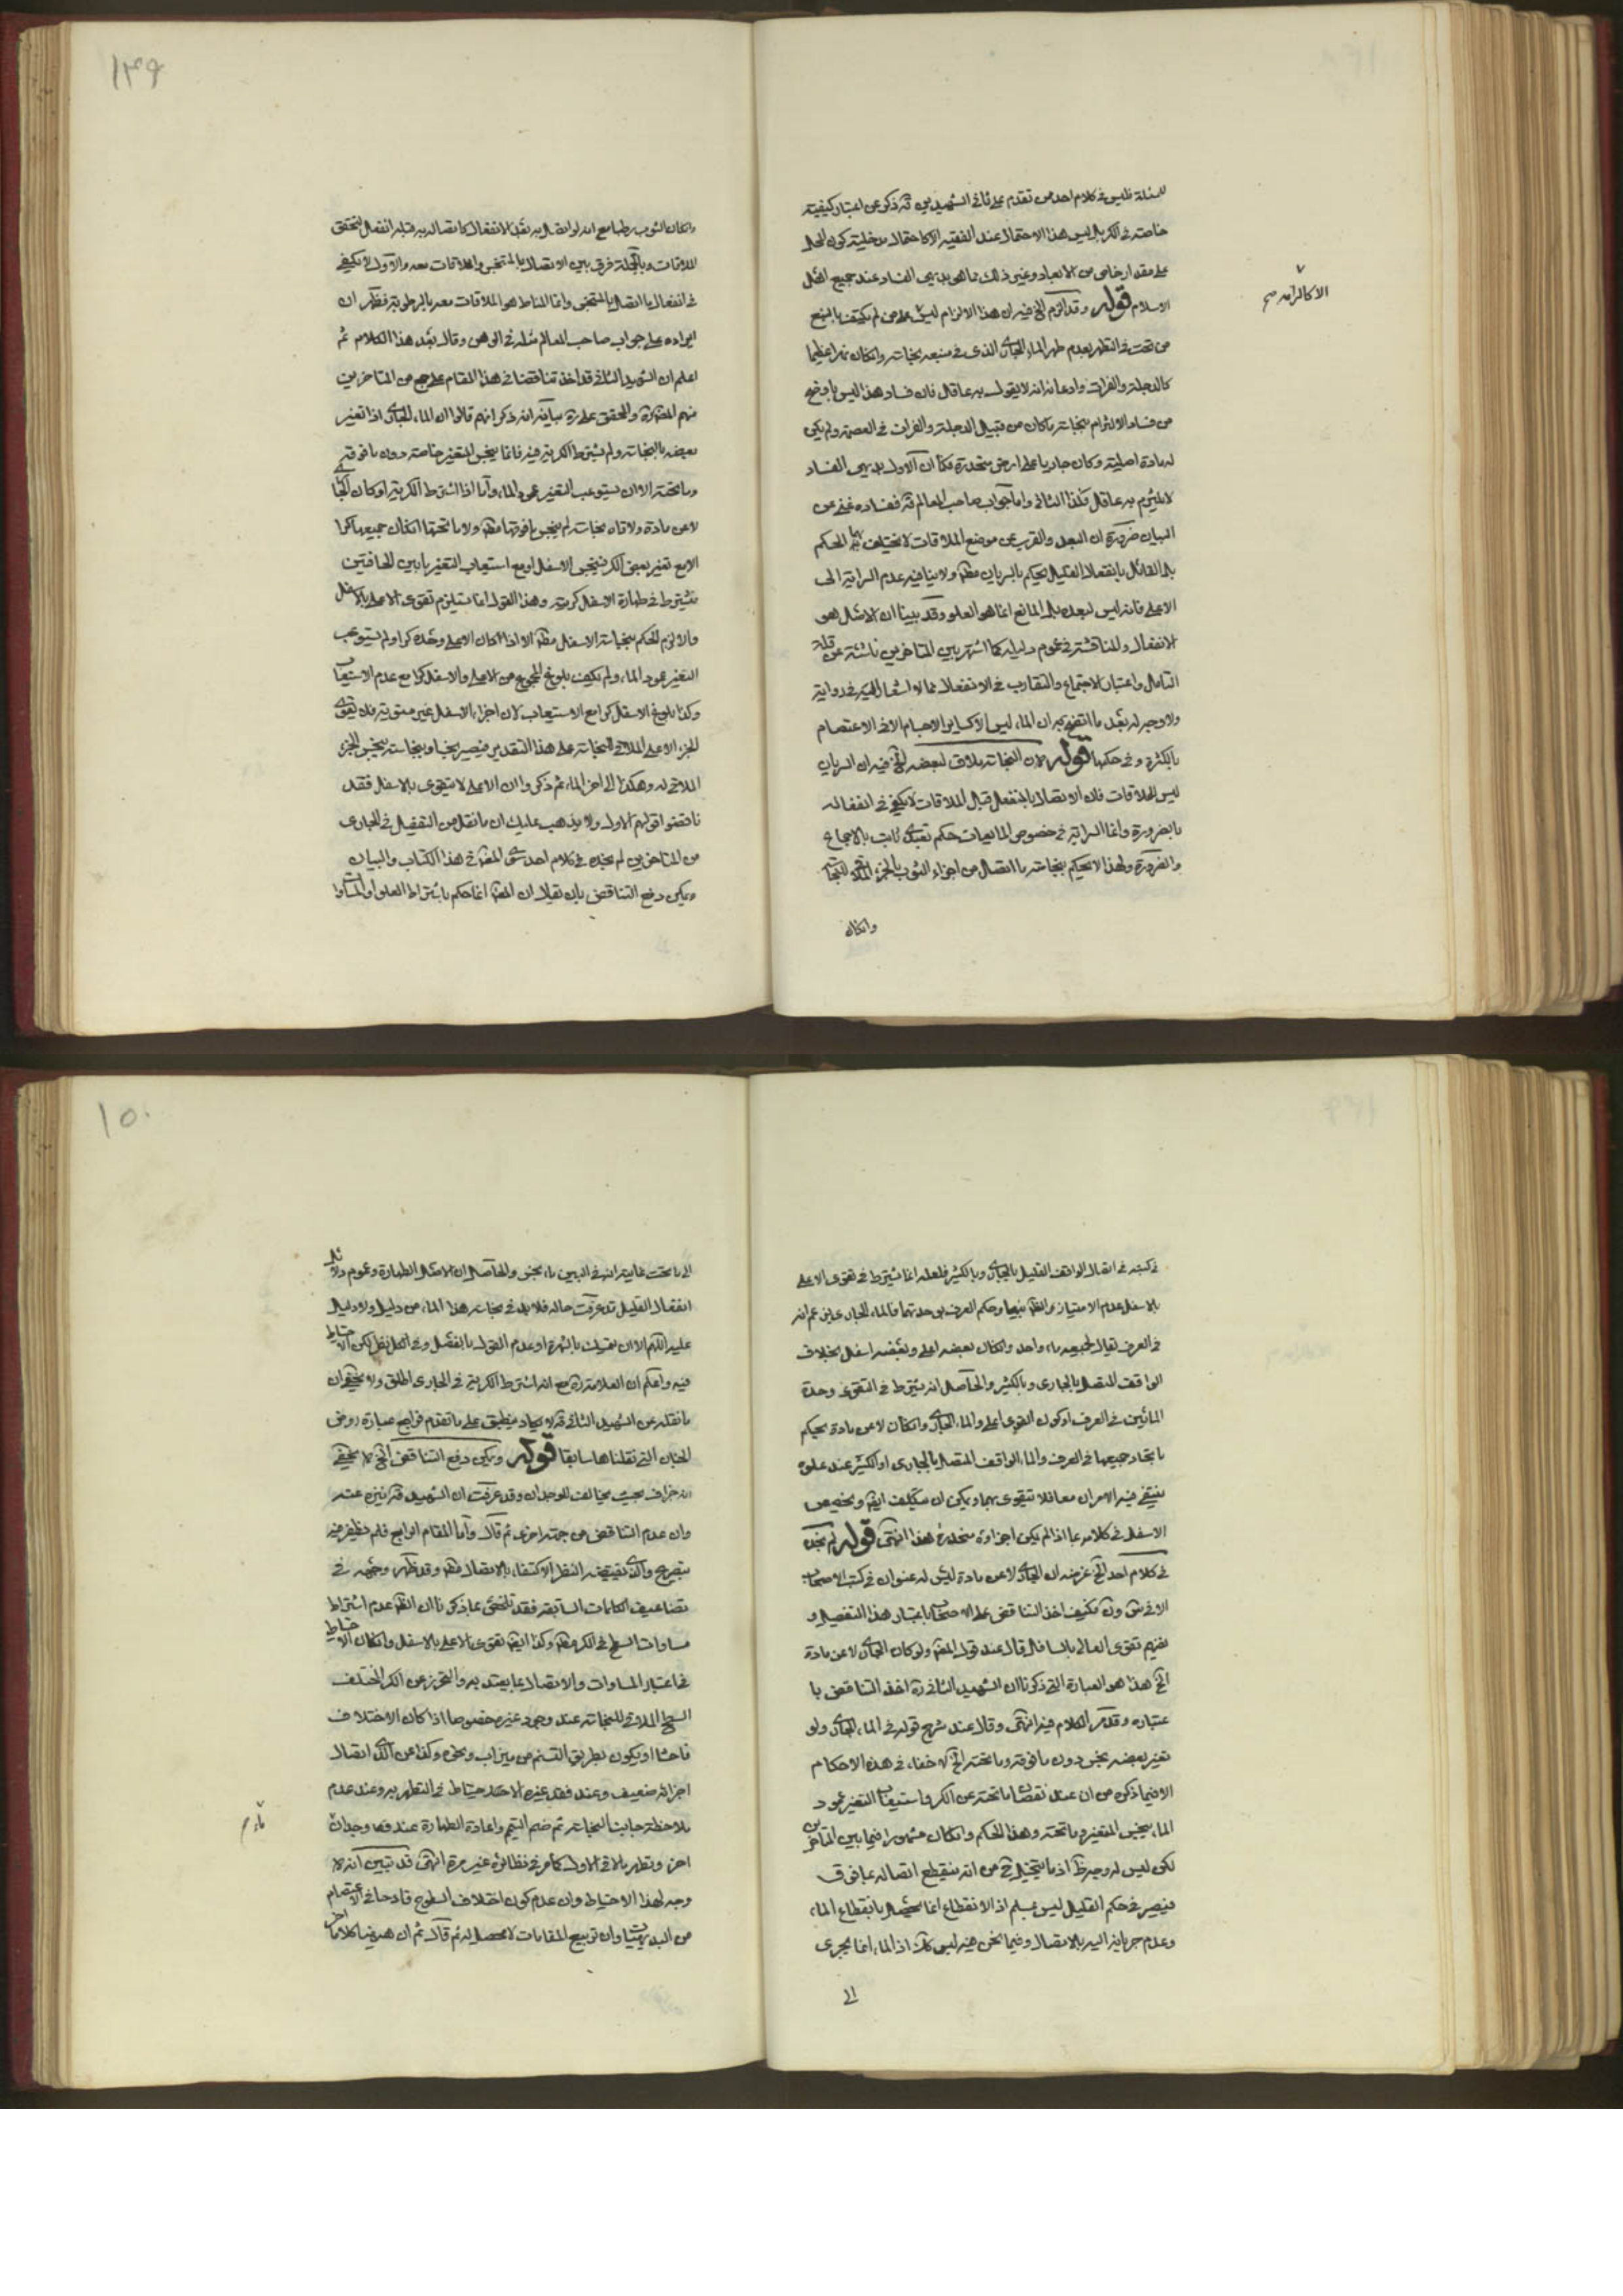 للمسئلة فليس في كلام احد من تقدم على ثاني الشهيدين قه ذكر عن اعتبار كيفية
خاصة في الكر بل ليس هذا الاحتمال عند الفقيه الا كاحتمال مدخلية كون الماء
على مقدار خاص من الابعاد وغير ذلك مما هو بديهي الفساد عند جميع اهل
الاسلام قوله وقد الزم الخ فيه ان هذا الالزام ليس على من لم يكتف بالنبع
من تحت في التطهير بعدم طهر الماء الجاري الذي في منبعه نجاسة وان كان نهرا عظيما
كالدجلة والفرات وادعائه انه لا يقول به عاقل فان فساد هذا ليس باوضح
من فساد الالتزام بنجاسة ما كان من قبيل الدجلة والفرات في العصمة ولم يكن
له مادة اصلية وكان جاريا على ارض منحدرة فكما ان الاول بديهي الفساد
لا يلتزم به عاقل فكذا الثاني واما جواب صاحب المعالم قه ففساده غني عن
البيان ضرورة ان البعد والقرب عن موضع الملاقات لا يختلف بهما الحكم
بل القائل بانفعال القليل يحكم بالسريان مطلقا ولا ينافيه عدم السراية الى
الاعلى فانه ليس لبعده بل المانع انما هو العلو وقد بينا ان الاصل هو
الانفعال والمناقشة في عموم دليله كما اشتهر بين المتاخرين ناشئة عن قلة
التامل واعتبار الاجتماع والتقارب في الانفعال مما لا اشعار اليه في رواية
ولا وجه له بعد ما اتضح به ان الماء ليس الا كساير الاجسام الا في الاعتصام
بالكثرة وفي حكمها قوله لان النجاسة تلاقي لبعضه الخ فيه ان السريان
ليس للملاقات فان الاتصال بالمنفعل قبل الملاقات لا يكفي في انفعاله
بالضرورة وانما السراية في خصوص المايعات حكم تعبدي ثابت بالاجماع
والضرورة ولهذا لا يحكم بنجاسة ما اتصل من اجزاء الثوب بالجزء الملاقي للنجاسة
وانكان
وانكان الثوب رطبا مع انه لو اتصل به بعد الانفعال كاتصاله به قبله انفعل لتحقق
الملاقات وبالجملة فرق بين الاتصال بالمتنجس والملاقات معه والاول لا يكفي
في انفعال ما اتصل بالمتنجس وانما المناط هو الملاقات معه بالرطوبة فظهر ان
ايراده على جواب صاحب المعالم مثله في الوهن وقال بعد هذا الكلام ثم
اعلم ان الشهيد الثاني قد اخذ تناقضا في هذا المقام على جمع من المتاخرين
منهم المصنف والمحقق علي ره بيانه انه ذكر انهم قالوا ان الماء الجاري اذا تغير
بعضه بالنجاسة ولم يشترط الكرية فيه فانما ينجس المتغير خاصة دون ما فوقه
وما تحته الا ان يستوعب التغير عمود الماء واما اذا اشترط الكرية او كان الجاري
لا عن مادة ولاقاه نجاسة لم ينجس ما فوقها مطلقا ولا ما تحتها ان كان جميعه كرا
الا مع تغير بعض الكر فينجس الاسفل او مع استيعاب التغير ما بين الحافتين
فيشترط في طهارة الاسفل كريته وهذا القول انما يستلزم تقوي الاعلى بالاسفل
والا لزم الحكم بنجاسة الاسفل مطلقا الا اذا كان الاعلى وحده كرا ولم يستوعب
التغير عمود الماء ولم يكف بلوغ المجموع من الاعلى والاسفل كرا مع عدم الاستيعاب
وكذا بلوغ الاسفل كرا مع الاستيعاب لان اجزاء الاسفل غير متقوية فلا تقوي
الجزء الاعلى الملاقي للنجاسة على هذا التقدير فيصير نجسا وبنجاسته ينجس الجزء
الملاقي له وهكذا الى اخر الماء ثم ذكروا ان الاعلى لا يتقوى بالاسفل فقد
ناقضوا قولهم الاول ولا يذهب عليك ان ما نقل من التفصيل في الجاري
من المتاخرين لم نجده في كلام احد سوى المصنف في هذا الكتاب والبيان
ويمكن دفع التناقض بان يقال ان المصنف انما حكم باشتراط العلو او المساوا
١٤٩
الا كالرامد صح
في كتبه في اتصال الواقف القليل بالجاري وبالكثير فلعله انما يشترط في تقوي الاعلى
بالاسفل عدم الامتياز والظهور بينهما وحكم العرف بوحدتهما فالماء الجاري لا عن مادة
في العرف يقال لجميعه ماء واحد وانكان بعضه اعلى وبعضه اسفل بخلاف
الواقف المتصل بالجاري وبالكثير والحاصل انه يشترط في التقوى وحدة
المائين في العرف او كون المقوي اعلى والماء الجاري وانكان لا عن مادة يحكم
باتحاد جميعها في العرف والماء الواقف المتصل بالجاري او الكثير عند علوه
ينتفي فيه الامران معا فلا يتقوى بهما ويمكن ان يتكلف ايضا ويخصص
الاسفل في كلامه بما اذا لم يكن اجزاؤه منحدرة هذا انتهى قوله لم نجده
في كلام احد الخ غرضه ان الجاري لا عن مادة ليس له عنوان في كتب الاصحاب
الا في ش ون فكيف اخذ التناقض على الاصحاب باعتبار هذا التفصيل و
نفيهم تقوي العالي بالسافل قال عند قول المصنف ولو كان الجاري لا عن مادة
الخ هذا هو العبارة التي ذكرنا ان الشهيد الثاني ره اخذ التناقض با
عتباره وقد مر الكلام فيه انتهى وقال عند شرح قوله في الماء الجاري ولو
تغير بعضه نجس دون ما فوقه وما تحته الخ لا خفاء في هذه الاحكام
الا فيما ذكره من ان عند نقصان ما تحته عن الكر واستيعاب التغير عمود
الماء ينجس المتغير وما تحته وهذا الحكم وانكان مشهورا فيما بين المتاخرين
لكن ليس له وجه ظ اذ ما يتخيل فيه من انه ينقطع اتصاله عما فوق
فيصير في حكم القليل ليس بمسلم اذ الانقطاع انما يحصل بانقطاع الماء
وعدم جريانه اليه بالاتصال وفيما نحن فيه ليس كك اذ الماء انما يجري
الى
الى ما تحت غايته انه في البين ماء نجس والحاصل ان الاصل الطهارة وعموم دلائل
انفعال القليل قد عرفت حاله فلا بد في نجاسة هذا الماء من دليل ولا دليل
عليه اللهم الا ان يتمسك بالشهرة او عدم القول بالفصل وفي الكل نظر لكن الاحتياط
فيه واعلم ان العلامة ره مع انه اشترط الكرية في الجاري اطلق ولا يخفى ان
ما نقله عن الشهيد الثاني قه لا يكاد ينطبق على ما تقدم فراجع عبارة روض
الجنان التي نقلناها سابقا قوله ويمكن دفع التناقض الخ لا يخفى
انه جزاف بحت مخالف للوجدان وقد عرفت ان الشهيد قه انيزه عنه
وان عدم التناقض من جهة اخرى ثم قال واما المقام الرابع فلم نظفر فيه
بتصريح والذي يقتضيه النظر الاكتفاء بالاتصال مطلقا وقد ظهر وجهه في
تضاعيف الكلمات السابقة فقد تلخص بما ذكرنا ان الظاهر عدم اشتراط
مساوات السطح في الكر مطلقا وكذا ايضا تقوي الاعلى بالاسفل وانكان الاحتياط
في اعتبار المساوات والاتصال بما يعتد به والتحرز عن الكر المختلف
السطح الملاقي للنجاسة عند وجود غيره خصوصا اذا كان الاختلاف
فاحشا او يكون بطريق التسنم من ميزاب ونحوه وكذا عن الكر اتصال
اجزائه ضعيف وعند فقد غيره الاحتياط في التطهر به وعند عدم
ملاحظة جانب النجاسة ثم ضم التيمم واعادة الطهارة عند وجدان
اخر وتطهر ما لاقى الاول كما مر في نظائره غير مرة انتهى قد تبين انه لا
وجه لهذا الاحتياط وان عدم كون اختلاف السطوح قادحا في الاعتصام
من البديهيات وان توبيع المقامات لا محصل له ثم قال ثم ان هيهنا كلاما اخر
١٥٠